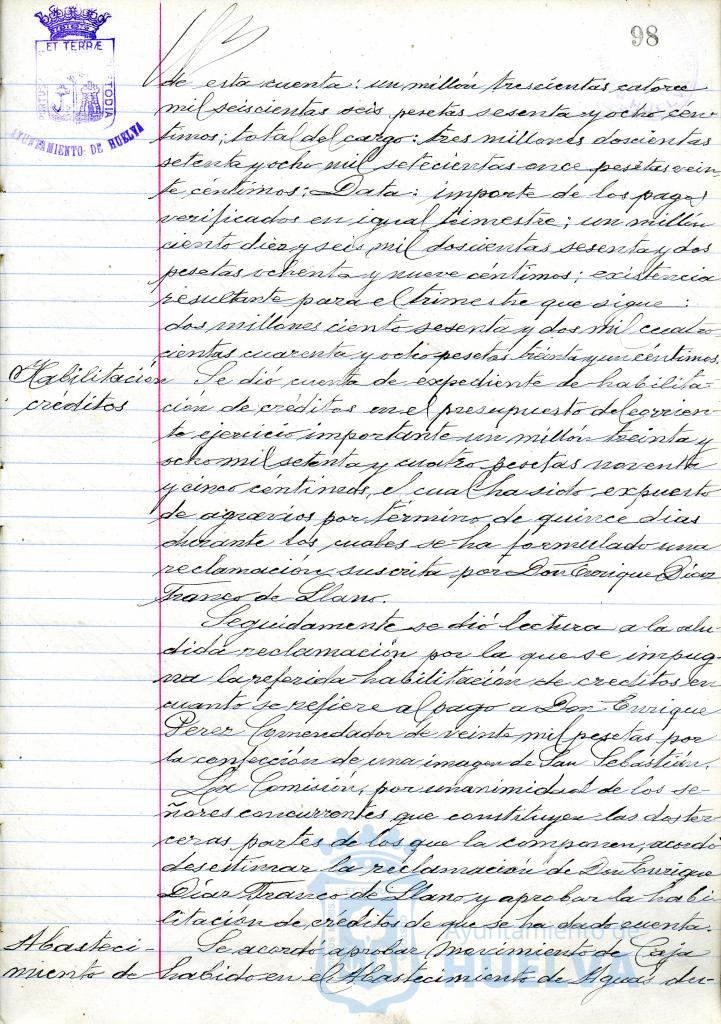 98
ET TERRÆ
PORTUS
CUSTODIA
AYUNTAMIENTO DE HUELVA
de esta cuenta: un millón trescientas catorce
mil seiscientas seis pesetas sesenta y ocho cén-
timos; total del cargo: tres millones doscientas
setenta y ocho mil setecientas once pesetas vein-
te céntimos; Data: importe de los pagos
verificados en igual trimestre; un millón
ciento diez y seis mil doscientas sesenta y dos
pesetas ochenta y nueve céntimos; existencia
resultante para el trimestre que sigue:
dos millones ciento sesenta y dos mil cuatro-
cientas cuarenta y ocho pesetas treinta y un céntimos.
Habilitación
créditos
Se dió cuenta de expediente de habilita-
ción de créditos en el presupuesto del corrien-
te ejercicio importante un millón treinta y
ocho mil setenta y cuatro pesetas noventa
y cinco céntimos, el cual ha sido expuesto
de agravios por término de quince dias
durante los cuales se ha formulado una
reclamación suscrita por Don Enrique Díaz
Franco de Llano.
Seguidamente se dió lectura a la alu-
dida reclamación por la que se impug-
na la referida habilitación de creditos en
cuanto se refiere al pago a Don Enrique
Perez Comendador de veinte mil pesetas por
la confección de una imagen de San Sebastián.
La Comisión, por unanimidad de los se-
ñores concurrentes que constituyen las dos ter-
ceras partes de los que la componen, acordó
desestimar la reclamación de Don Enrique
Díaz Franco de Llano y aprobar la habi-
litación de créditos de que se ha dado cuenta.
Abasteci-
miento de
Se acordó aprobar movimiento de Caja
habido en el Abastecimiento de Aguas du-
Ayuntamiento de
HUELVA